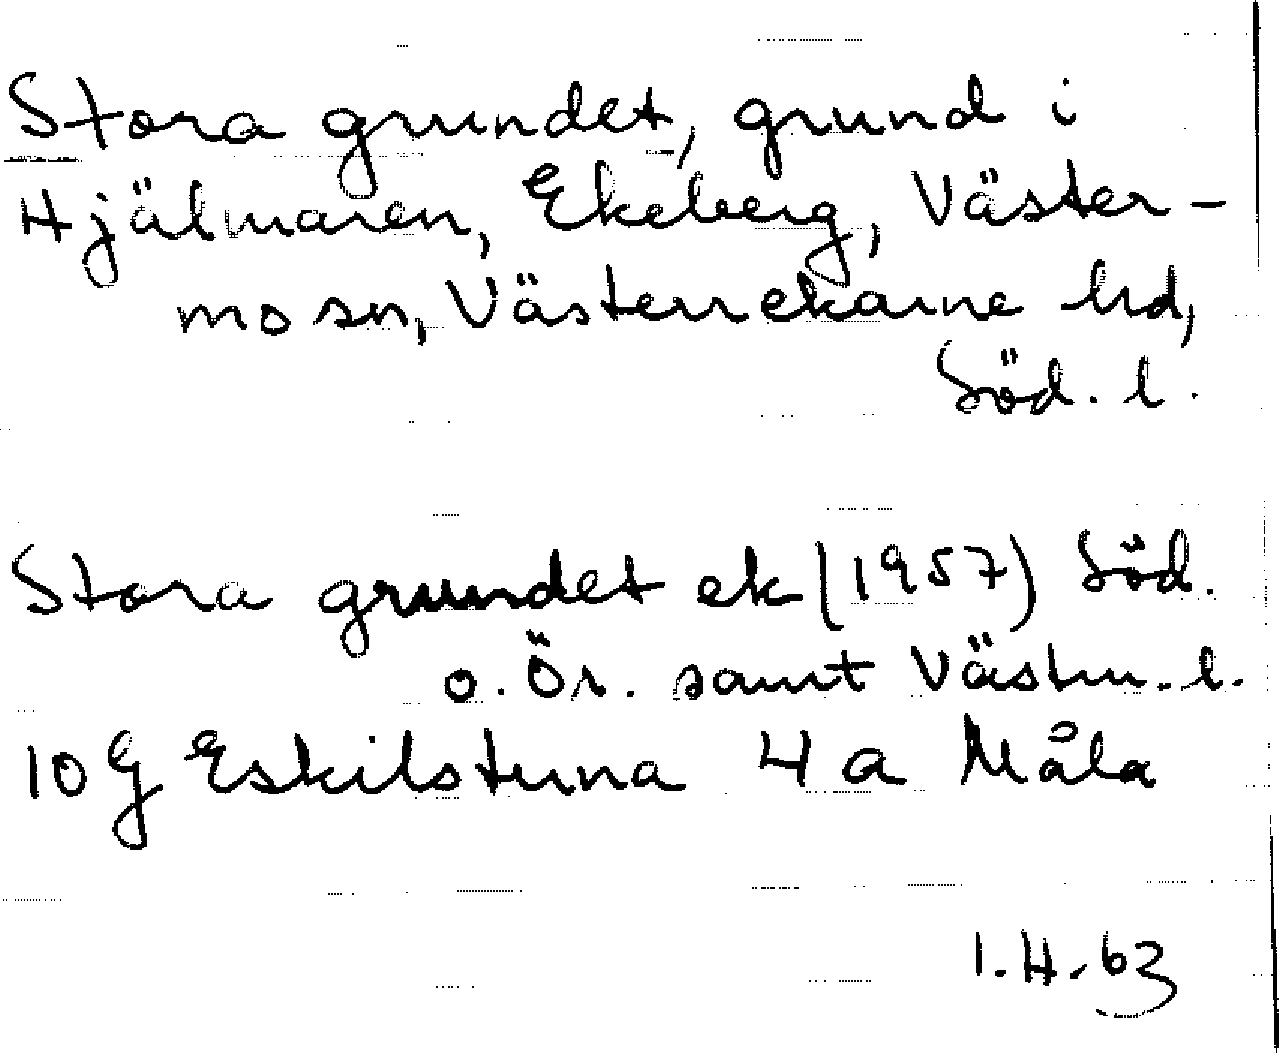 Stora grundet, grund i
Hjälmaren, Ekeberg, Väster-
mo sn, Västerrekarne hd,
Söd. l.
Stora grundet ek (1957) Söd.
o. Ör. samt Västm. l.
10 G Eskilstuna 4 a Måla
1.H.63